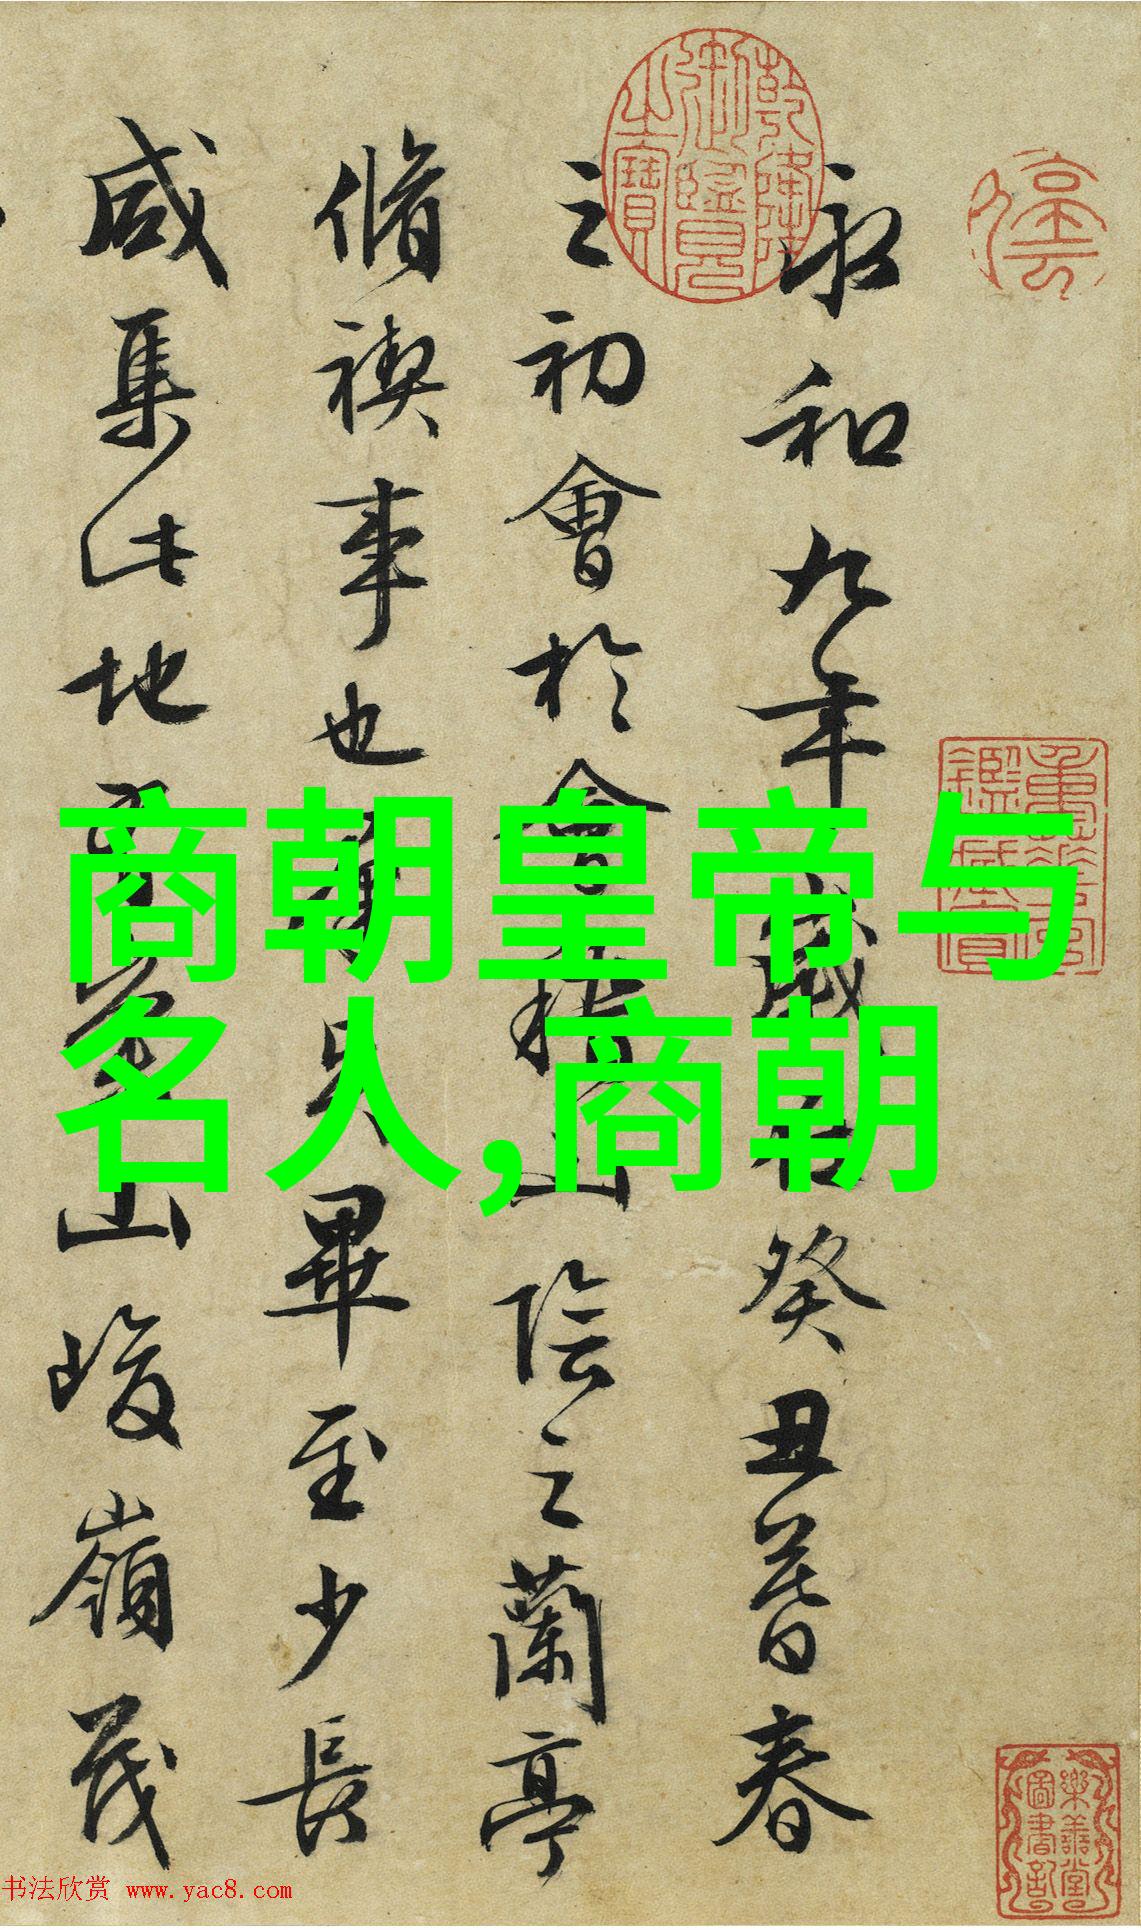 永和九年歲在癸丑暮春
之初會於會稽山陰之蘭亭
脩禊事也羣賢畢至少長
咸集此地有崇山峻嶺茂
商朝皇帝与
名人,商朝
乾隆御覽之寶
樂善堂圖書記
书法欣赏 www.yac8.com